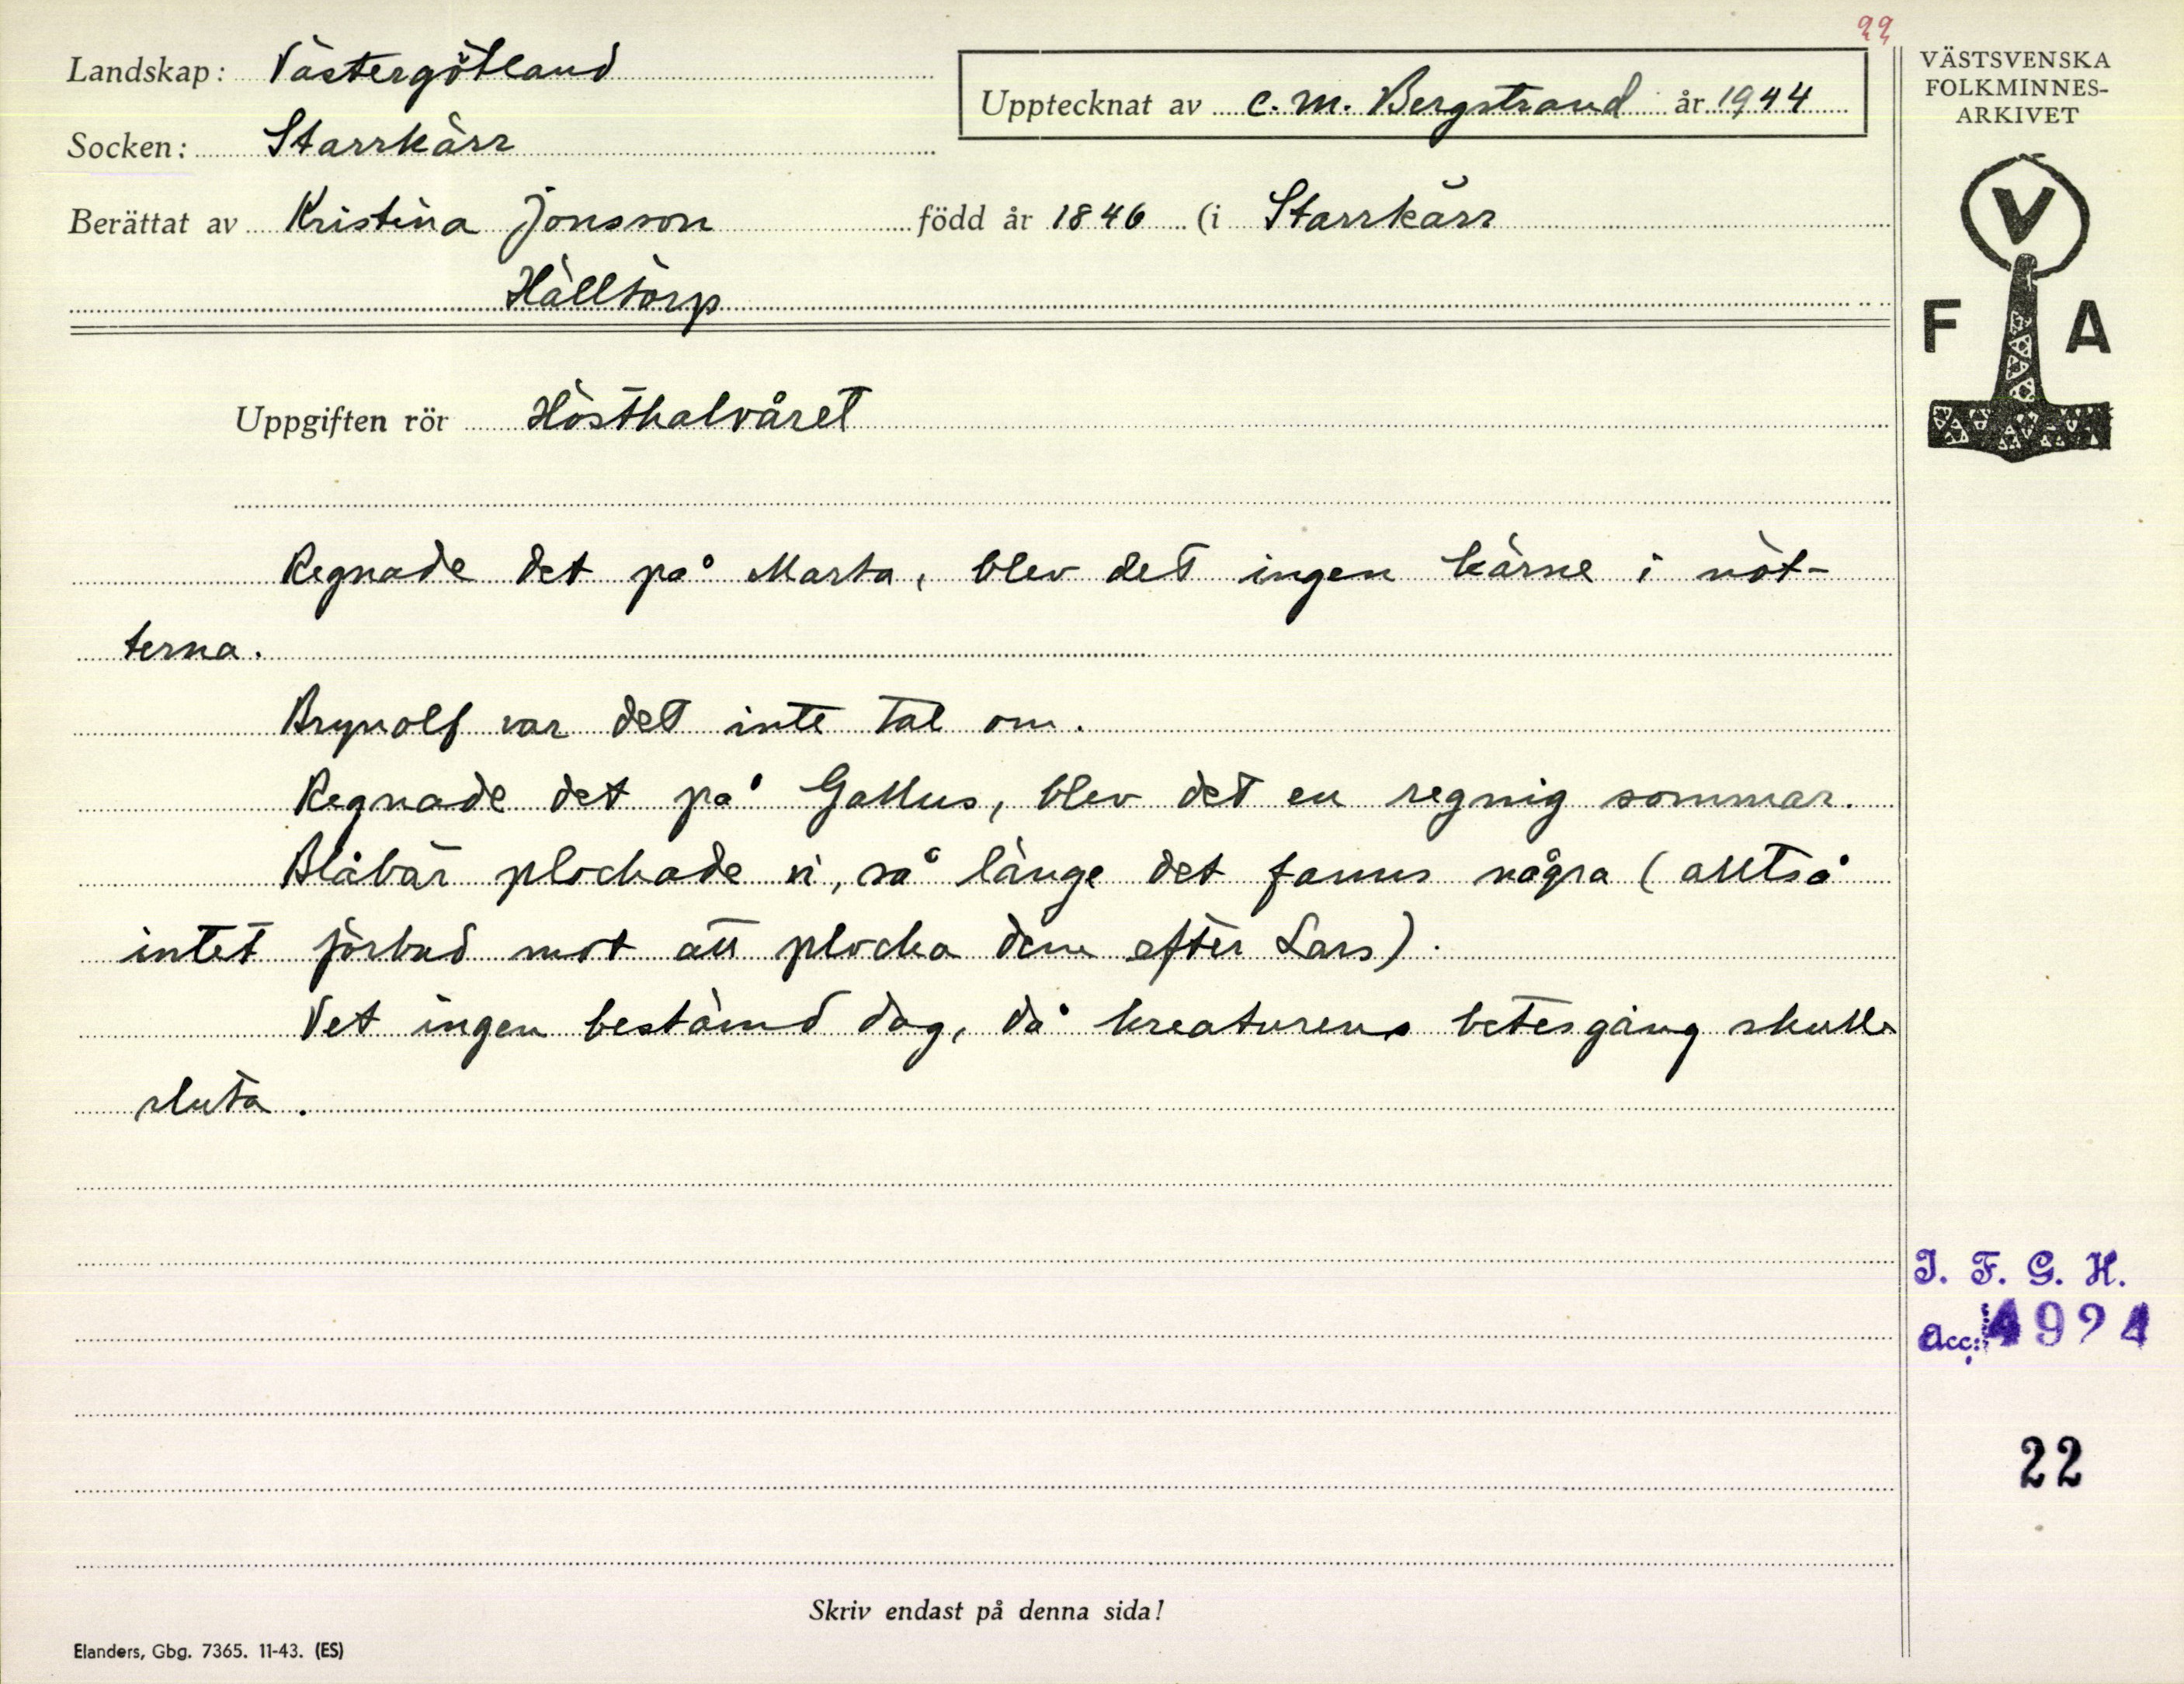 22
Landskap: Västergötland
Upptecknat av C. M. Bergstrand år 1944
Socken: Starrkärr
Berättat av Kristina Jonsson född år 1846 (i Starrkärr
Hälltorp
VÄSTSVENSKA
FOLKMINNES-
ARKIVET
V
F A
Uppgiften rör Hösthalvåret
Regnade det på Marta, blev det ingen kärne i nöt-
terna.
Brynolf var det inte tal om.
Regnade det på Gallus, blev det en regnig sommar.
Blåbär plockade vi, så länge det fanns några (alltså
intet förbud mot att plocka dem efter Lars).
Vet ingen bestämd dag, då kreaturens betesgång skulle
sluta.
I. F. G. H.
Acc: 4924
22
Skriv endast på denna sida!
Elanders, Gbg. 7365. 11-43. (ES)